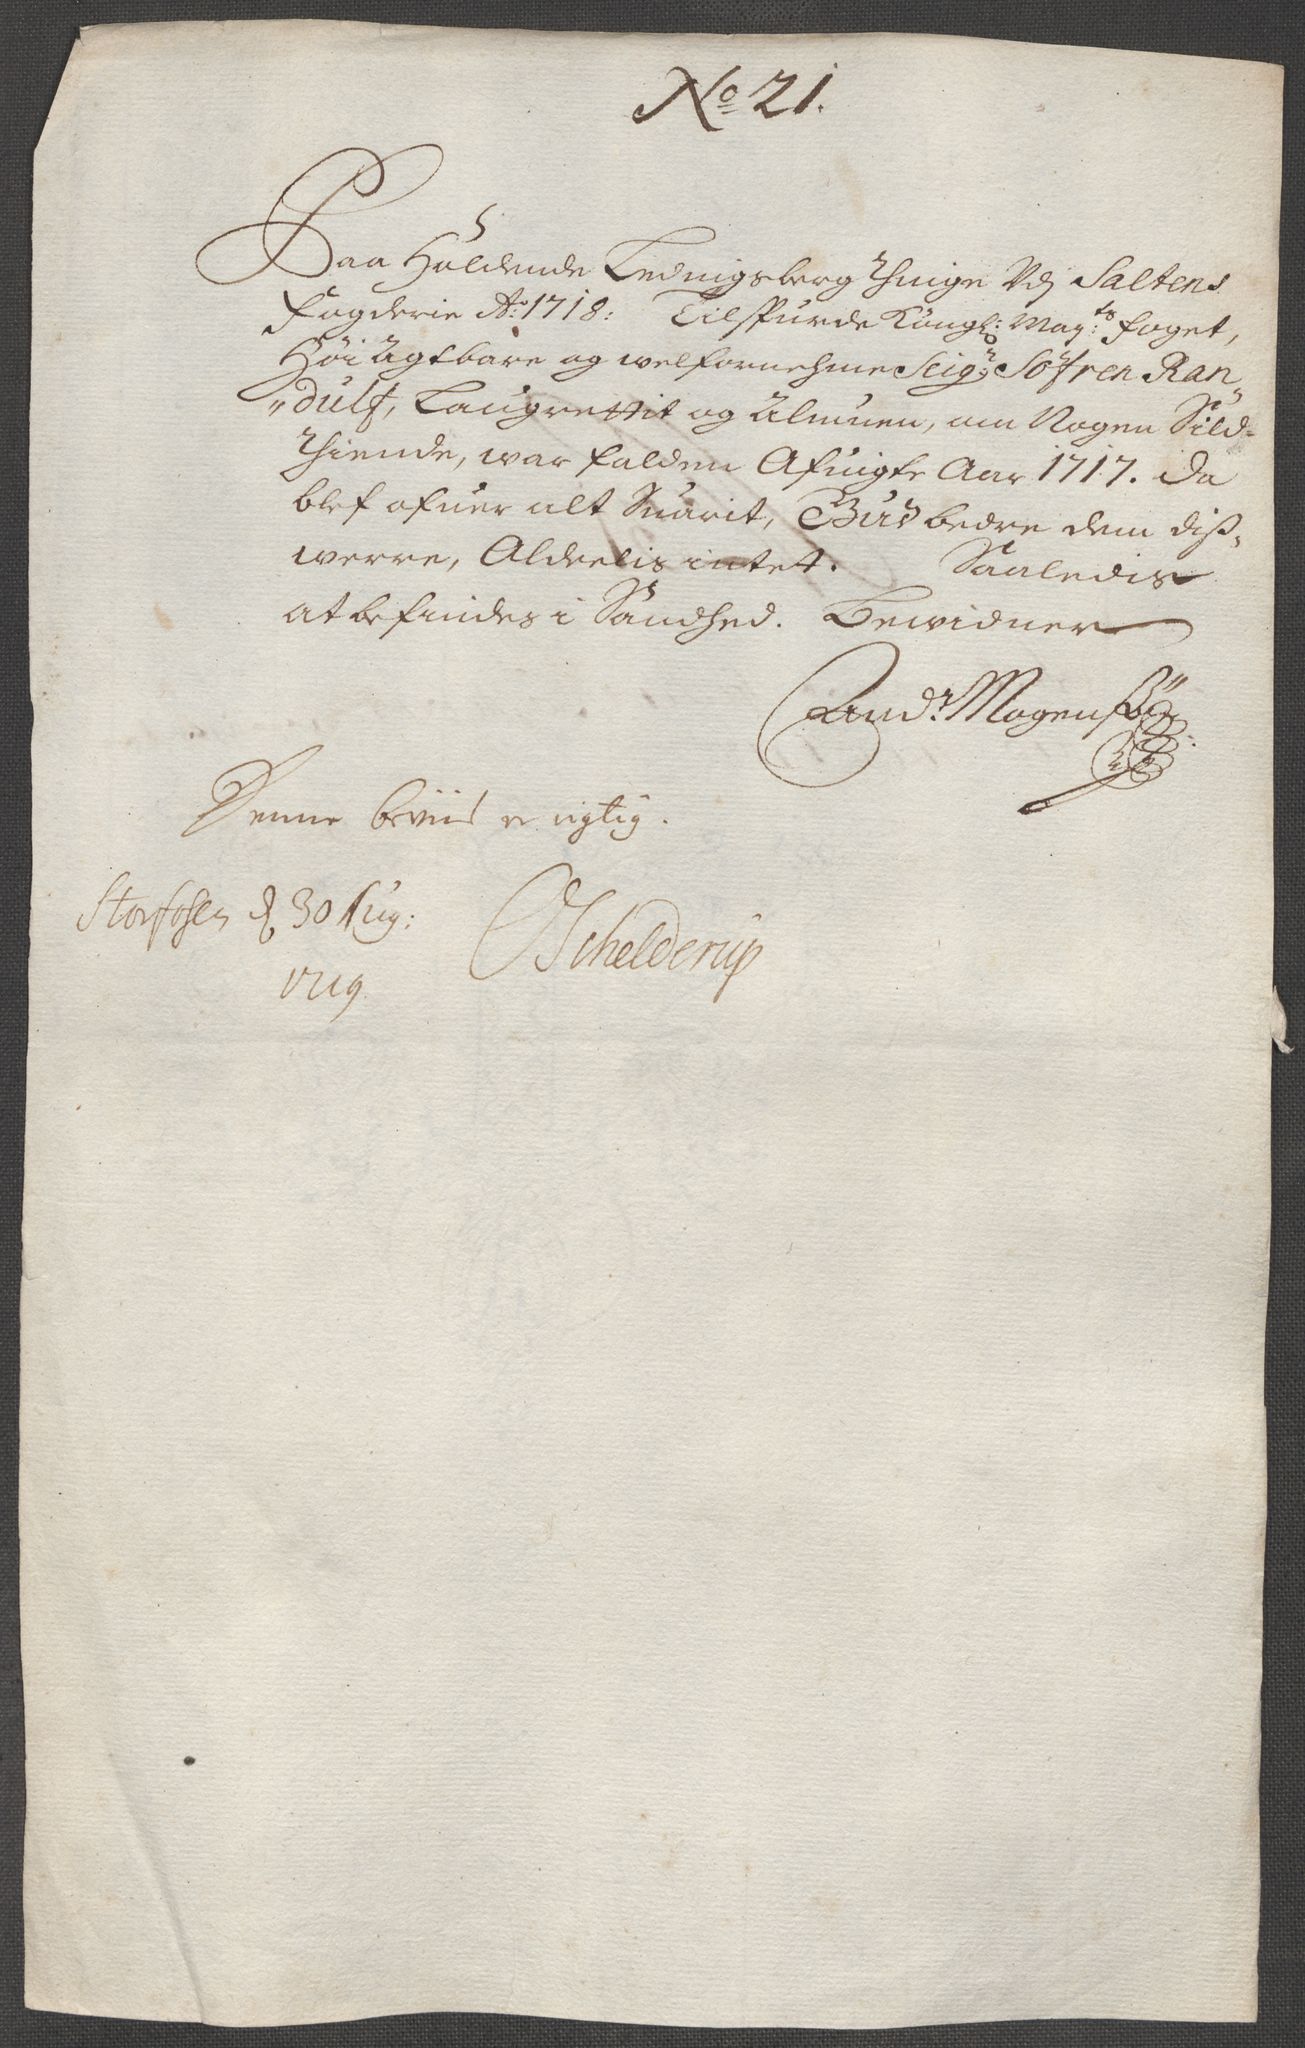 No 21.
Paa Holdende Ledningsberg Thinge Vdj Saltens
Fogderie Ao: 1718: Tilspurde Kongl: May:ts foget,
Höi Agtbare og welfornehme Seigr Söfren Ran„
„dulf, Laugrettit og Almuen, om Nogen Sild-
Thiende, war falden Afvigte Aar 1717. Da
blef ofuer alt Suarit, Gud bedre dem diß„
werre, Aldeelis intet. Saaledis
at befindes i Sandhed. Bewidner
And:r Mogensßön
Denne beviis er rigtig.
Storfosen d 30 Aug:
1719.
OSchelderup